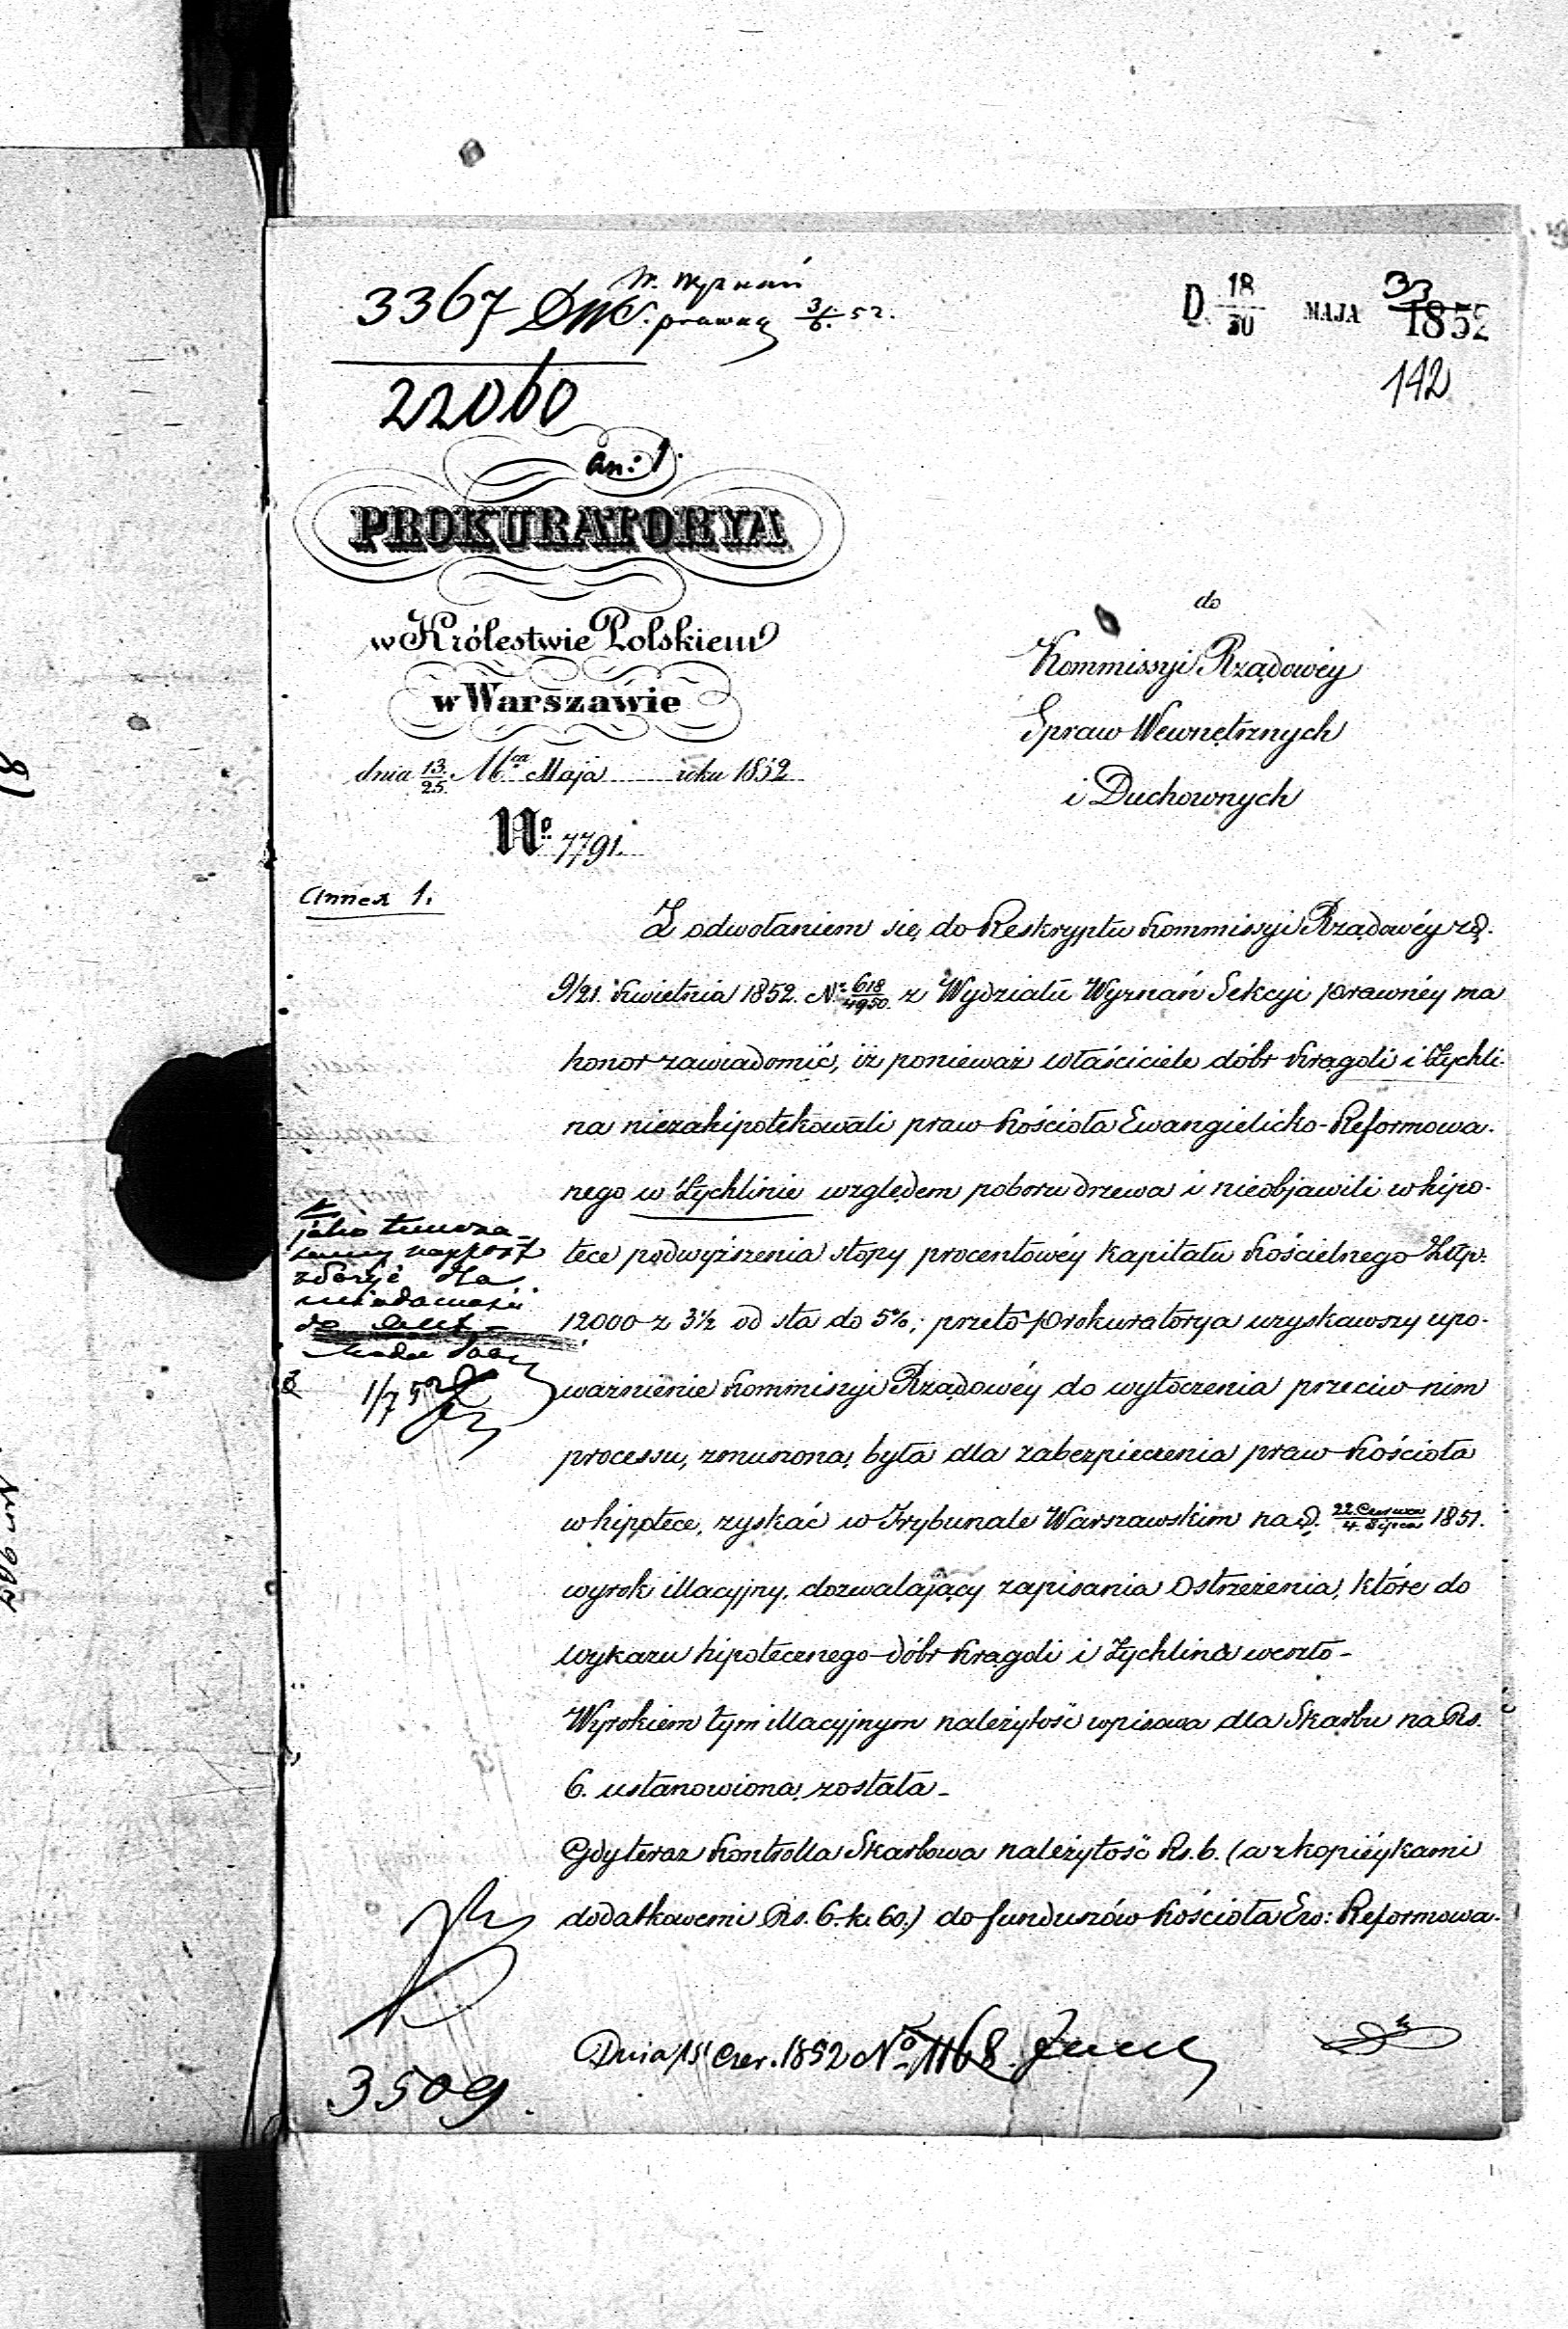 W. Wyznań
3367 DWS. prawna 3/6. 52.
22060
D. 18/30 MAJA 1852
33
142
an: 1.
PROKURATORYA
w Królestwie Polskiem
w Warszawie
dnia 13/25. Mca Maja roku 1852
No. 7791.
do
Kommissyi Rządowéy
Spraw Wewnętrznych
i Duchownych
Annex 1.
Z odwołaniem się do Reskryptu Kommissyi Rządowéy z d.
9/21. Kwietnia 1852. Nr. 618/4950. z Wydziału Wyznań Sekcyi prawnéy ma
honor zawiadomić, iż ponieważ właściciele dóbr Krągoli i Żychli-
na niezahipotekowali praw Kościoła Ewangielicko-Reformowa-
nego w Żychlinie względem poboru drzewa i nieobjawili w hipo-
tece podwyższenia stopy procentowéy kapitału Kościelnego Złtp.
12000 z 3½ od sta do 5%; przeto Prokuratorya uzyskawszy upo-
ważnienie Kommissyi Rządowéy do wytoczenia przeciw nim
processu, zmuszoną była dla zabezpieczenia praw Kościoła
w hipotece, zyskać w Trybunale Warszawskim na d. 22. Czerwca/4. Lipca 1851.
wyrok illacyjny, dozwalający zapisania Ostrzeżenia, które do
wykazu hipotecznego dóbr Krągoli i Żychlina weszło-
Wyrokiem tym illacyjnym należytość wpisowa dla Skarbu na Rs.
6. ustanowioną została-
Gdy teraz Kontrolla Skarbowa należytość Rs. 6. (a z kopiéykami
dodatkowemi Rs. 6. k. 60.) do funduszów Kościoła Ew: Reformowa-
jako
rapport
dla
wiadomości
do
1/7 52
Dnia 15 Czer. 1852 No. 1168.
3509.